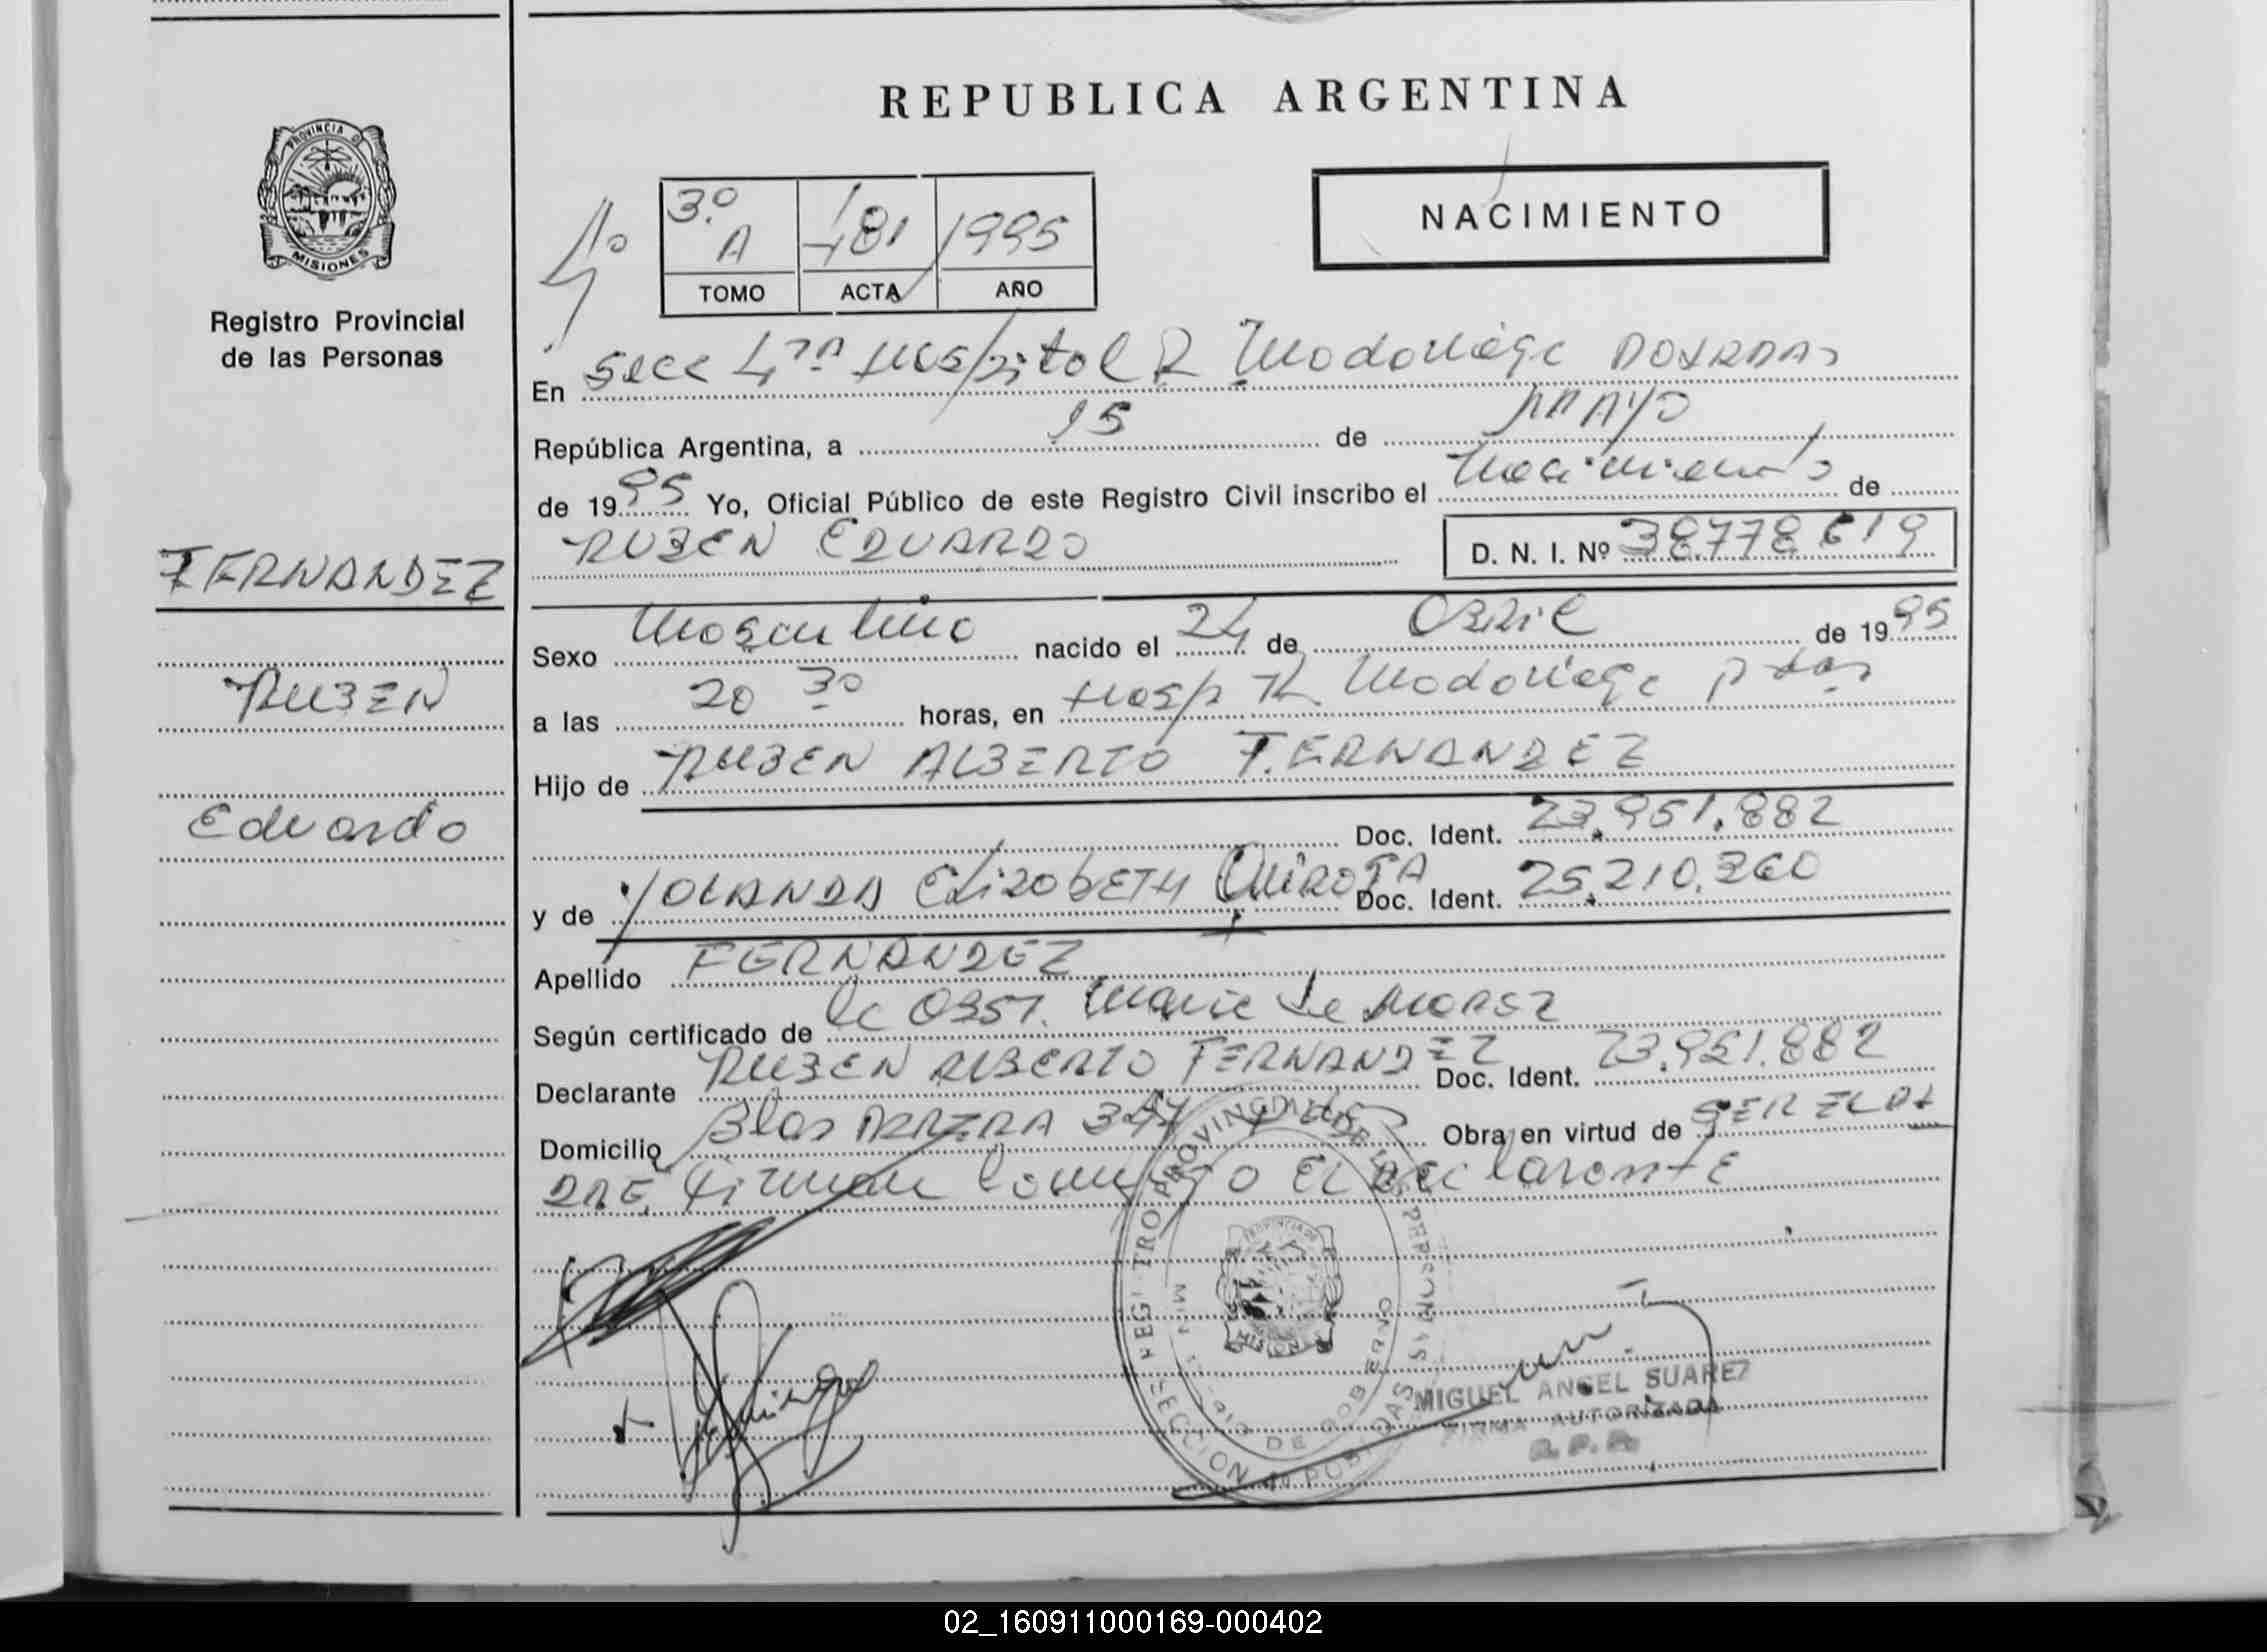 REPUBLICA ARGENTINA
PROVINCIA D
MISIONES
Registro Provincial
de las Personas
4º
3º A 181 1995
TOMO ACTA AÑO
NACIMIENTO
En Secc 4ta Hospital R Madariaga POSADAS
República Argentina, a 15 de MAYO
de 1995 Yo, Oficial Público de este Registro Civil inscribo el Nacimiento de
RUBEN EDUARDO D. N. I. Nº 38778619
FERNANDEZ
RUBEN
Eduardo
Sexo Masculino nacido el 24 de Abril de 1995
a las 20 30 horas, en Hosp R Madariaga Pdas
Hijo de RUBEN ALBERTO FERNANDEZ
Doc. Ident. 23.951.882
y de YOLANDA ElizabETH QUIROGA Doc. Ident. 25.210.360
Apellido FERNANDEZ
Según certificado de la OBST. Maria de
Declarante RUBEN ALBERTO FERNANDEZ Doc. Ident. 23.951.882
Domicilio Blas PARERA Obra en virtud de
firman conmigo El declarantE
REGISTRO PROVINCIAL DE LAS PERSONAS
MINISTERIO DE GOBIERNO
SECCION 4a POSADAS
MISIONES
MIGUEL ANGEL SUAREZ
FIRMA AUTORIZADA
R. P. P.
02_160911000169-000402